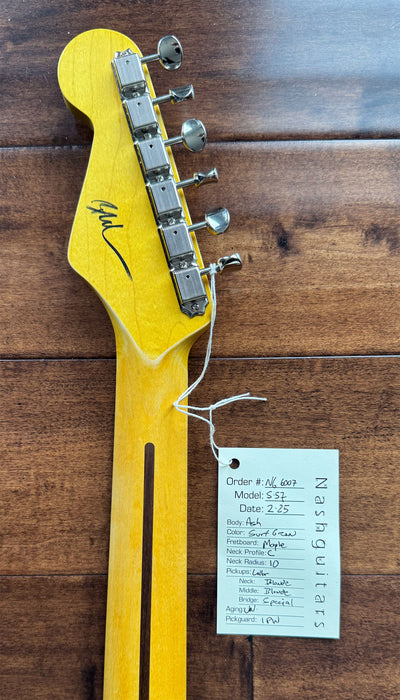 Nashguitars
Order #: NG 6007
Model: S-57
Date: 2-25
Body: Ash
Color: Surf Green
Fretboard: Maple
Neck Profile: C
Neck Radius: 10
Pickups: Lollar
Neck: Blonde
Middle: Blonde
Bridge: Special
Aging:
Pickguard: 1 PW